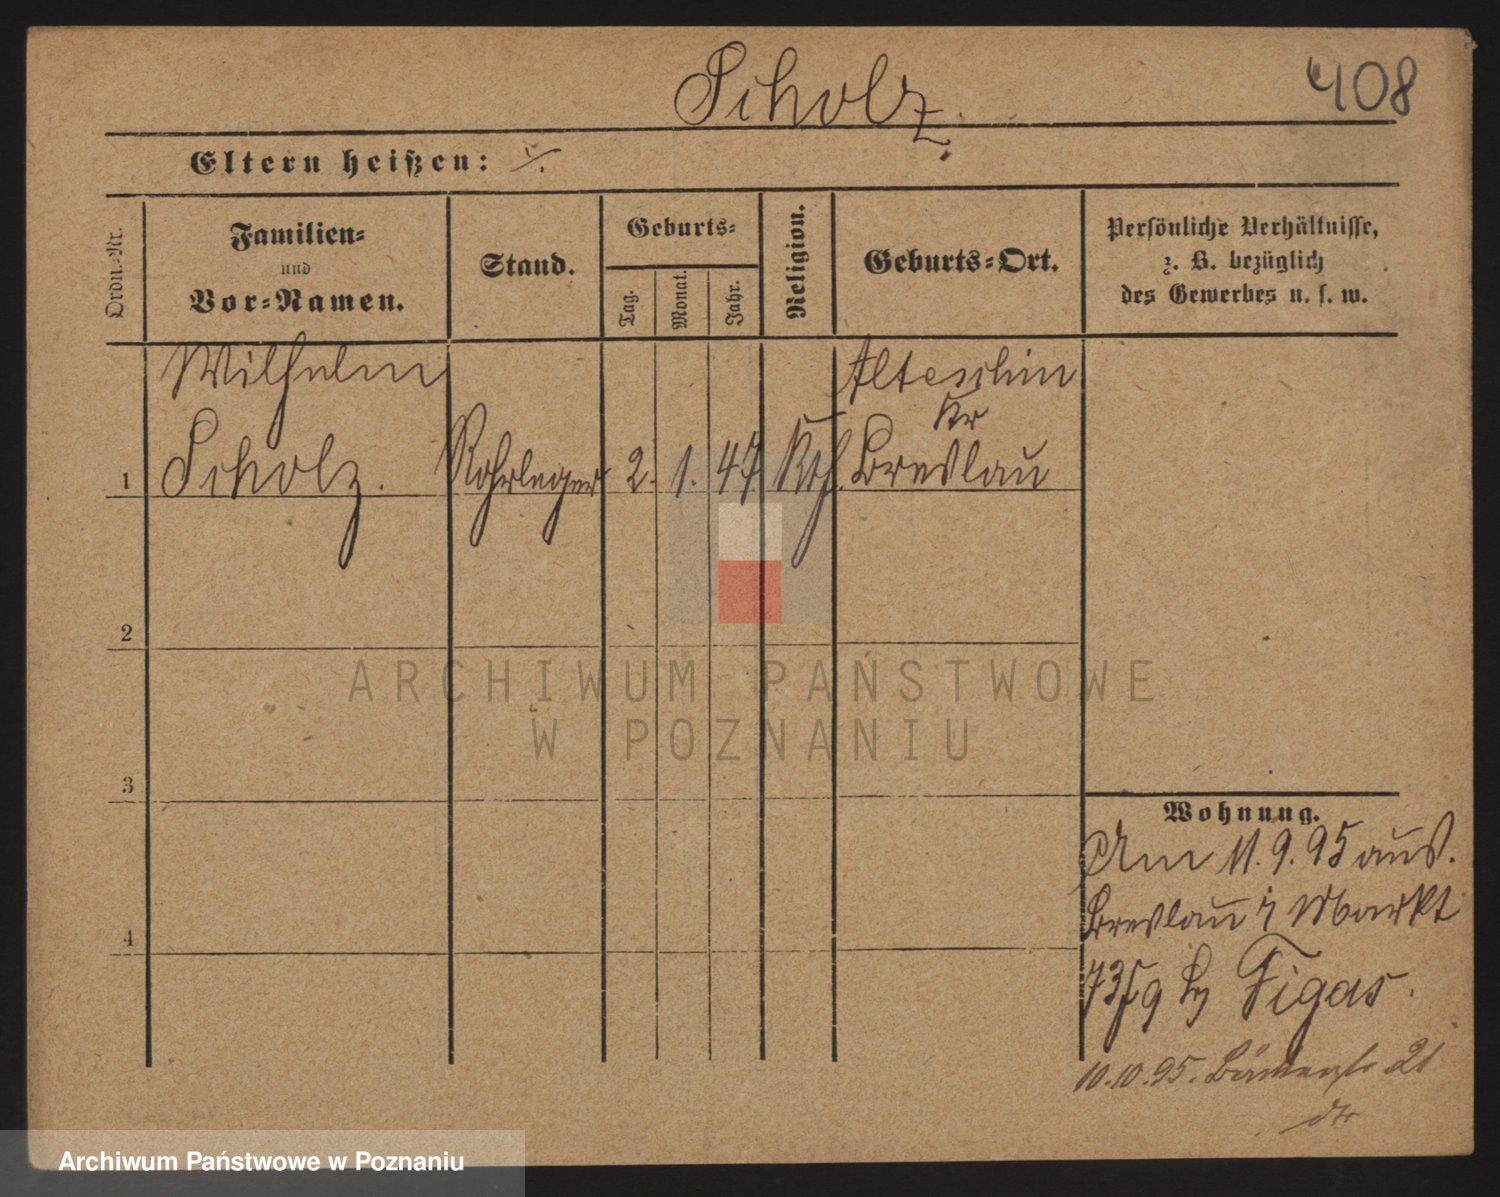 Scholz.
408
Eltern heißen: ./.
Ordn.-Nr.
Familien-
und
Vor-Namen.
Stand.
Geburts-
Tag.
Monat.
Jahr.
Religion.
Geburts-Ort.
Persönliche Verhältnisse,
z. B. bezüglich
des Gewerbes u. s. w.
Wilhelm
Scholz.
1
Rohrleger
2. 1. 47
Kth.
Alteschin
Kr
Breslau
2
3
4
Wohnung.
Am 11.9.95 aus.
Breslau Markt
73 Figas.
10.10.95. 21
ARCHIWUM PAŃSTWOWE
W POZNANIU
Archiwum Państwowe w Poznaniu